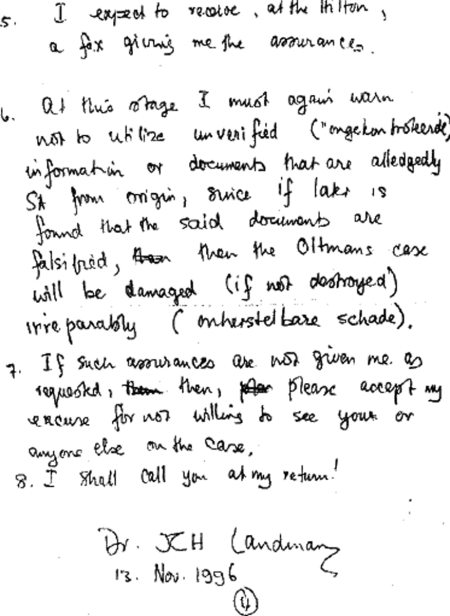 5. I expect to receive, at the Hilton,
a fax giving me the assurances.
6. At this stage I must again warn
not to utilize unverified ("ongekontroleerde)
information or documents that are alledgedly
SA from origin, since if later is
found that the said documents are
falsified, then the Oltmans case
will be damaged (if not destroyed)
irreparably (onherstelbare schade).
7. If such assurances are not given me as
requested, then, please accept my
excuse for not willing to see your or
anyone else on the case.
8. I shall call you at my return!
Dr. JCH Landman
13. Nov. 1996
4